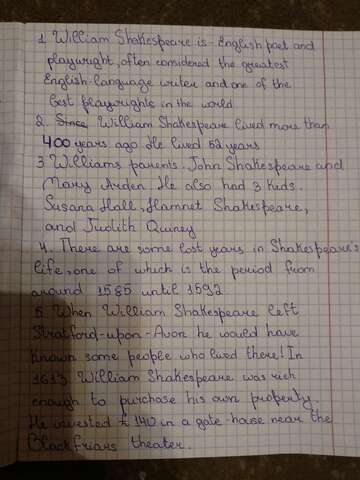 1. William Shakespeare is - English poet and
playwright, often considered the greatest
English-language writer and one of the
best playwrights in the world
2. Since William Shakespeare lived more than
400 years ago. He lived 52 years
3 Williams parents. John Shakespeare and
Mary Arden. He also had 3 kids.
Susana Hall, Hamnet Shakespeare,
and Judith Quiney
4. There are some lost years in Shakespeare's
life, one of which is the period from
around 1585 until 1592
5. When William Shakespeare left
Stratford-upon-Avon he would have
known some people who lived there! In
1613 William Shakespeare was rich
enough to purchase his own property.
He invested £ 140 in a gate-house near the
Blackfriars theater.